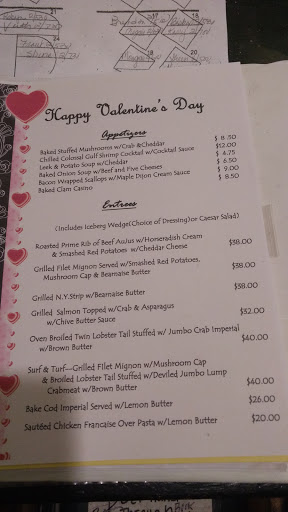 21
24
17
18
20
Happy Valentine's Day
Appetizers
Baked Stuffed Mushrooms w/Crab &Cheddar $ 8.50
Chilled Colossal Gulf Shrimp Cocktail w/Cocktail Sauce $12.00
Leek & Potato Soup w/Cheddar $ 4.75
Baked Onion Soup w/Beef and Five Cheeses $ 6.50
Bacon Wrapped Scallops w/Maple Dijon Cream Sauce $ 9.00
Baked Clam Casino $ 8.50
Entrees
(Includes Iceberg Wedge(Choice of Dressing)or Caesar Salad)
Roasted Prime Rib of Beef AuJus w/Horseradish Cream
& Smashed Red Potatoes w/Cheddar Cheese $38.00
Grilled Filet Mignon Served w/Smashed Red Potatoes,
Mushroom Cap & Bearnaise Butter $38.00
Grilled N.Y.Strip w/Bearnaise Butter $38.00
Grilled Salmon Topped w/Crab & Asparagus
w/Chive Butter Sauce $32.00
Oven Broiled Twin Lobster Tail Stuffed w/ Jumbo Crab Imperial
w/Brown Butter $40.00
Surf & Turf--Grilled Filet Mignon w/Mushroom Cap
& Broiled Lobster Tail Stuffed w/Deviled Jumbo Lump
Crabmeat w/Brown Butter $40.00
Bake Cod Imperial Served w/Lemon Butter $26.00
Sautéed Chicken Francaise Over Pasta w/Lemon Butter $20.00